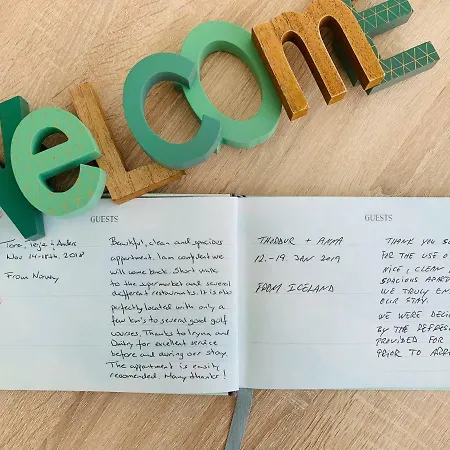 Welcome
GUESTS
Tore, Terje & Anders
Nov 14-18th, 2018
From Norway
Beautiful, clean and spacious
appartment. I am confident we
will come back. Short walk
to the supermarket and several
different restaurants. It is also
perfectly located with only a
few km's to several good golf
courses. Thanks to Iryna and
Dmitry for excellent service
before and during our stay.
The appartment is easily
recomended. Many thanks!
GUESTS
+ ANNA
12.-19. JAN 2019
FROM ICELAND
THANK YOU
FOR THE USE
NICE, CLEAN
SPACIOUS
WE TRULY
OUR STAY.
WE WERE
BY THE
PROVIDED FOR
PRIOR TO